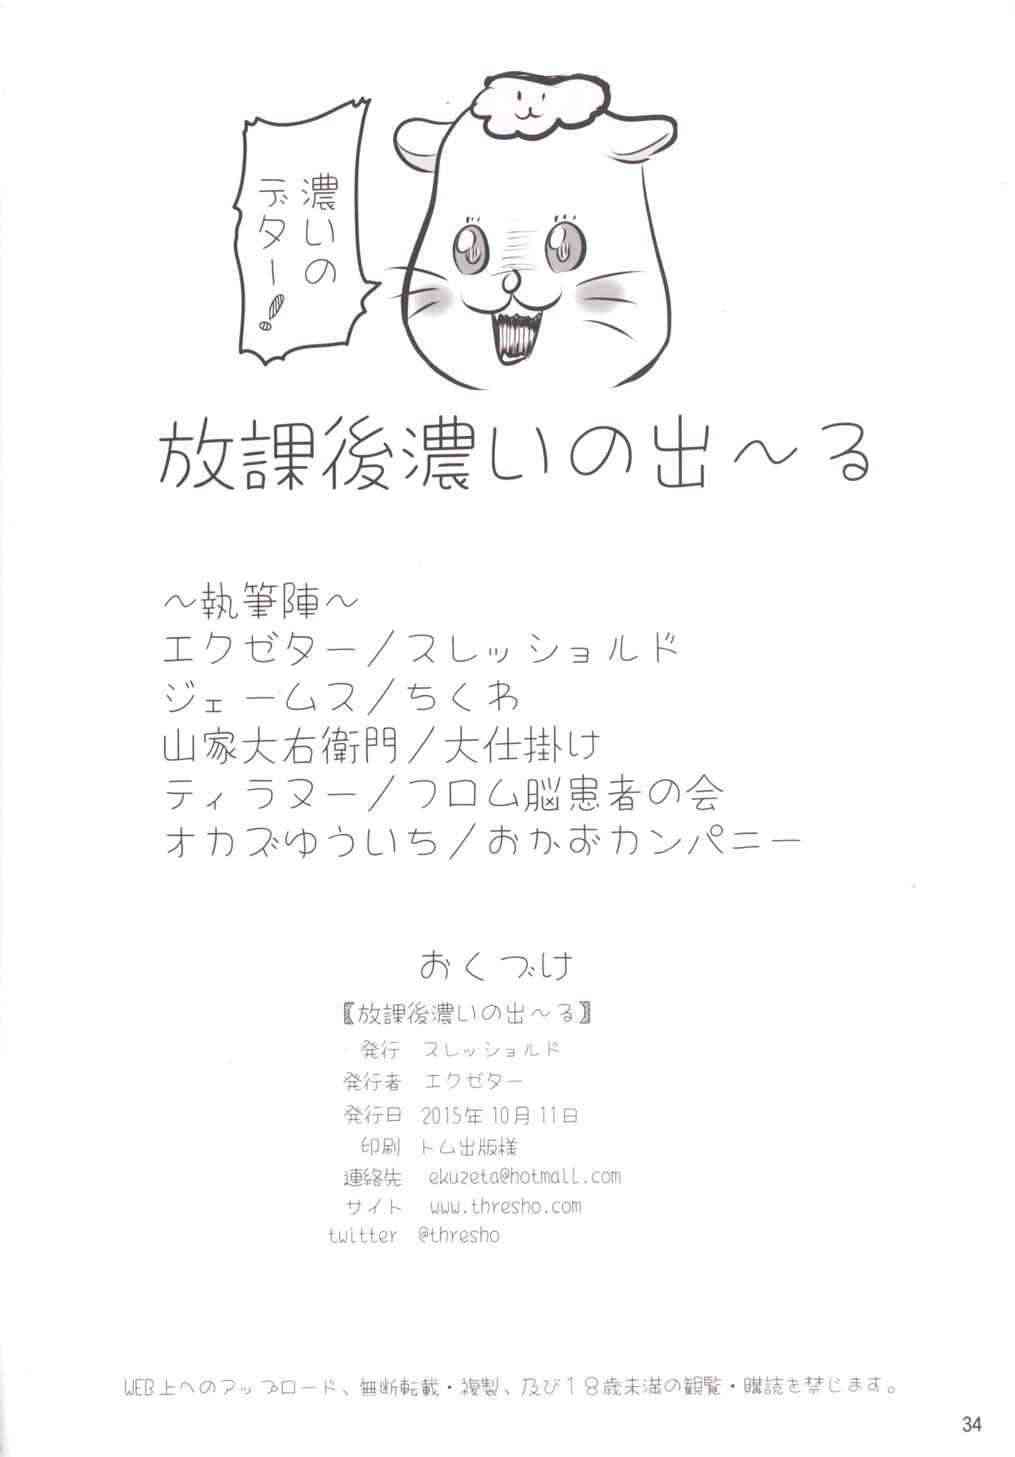 濃いの
デター!
放課後濃いの出～る
～執筆陣～
エクゼター/スレッショルド
ジェームス/ちくわ
山家大右衛門/大仕掛け
ティラヌー/フロム脳患者の会
オカズゆういち/おかおカンパニー
おくづけ
〖放課後濃いの出～る〗
発行 スレッショルド
発行者 エクゼター
発行日 2015年10月11日
印刷 トム出版様
連絡先 ekuzeta@hotmail.com
サイト www.thresho.com
twitter @thresho
WEB上へのアップロード、無断転載・複製、及び18歳未満の観覧・購読を禁じます。
34